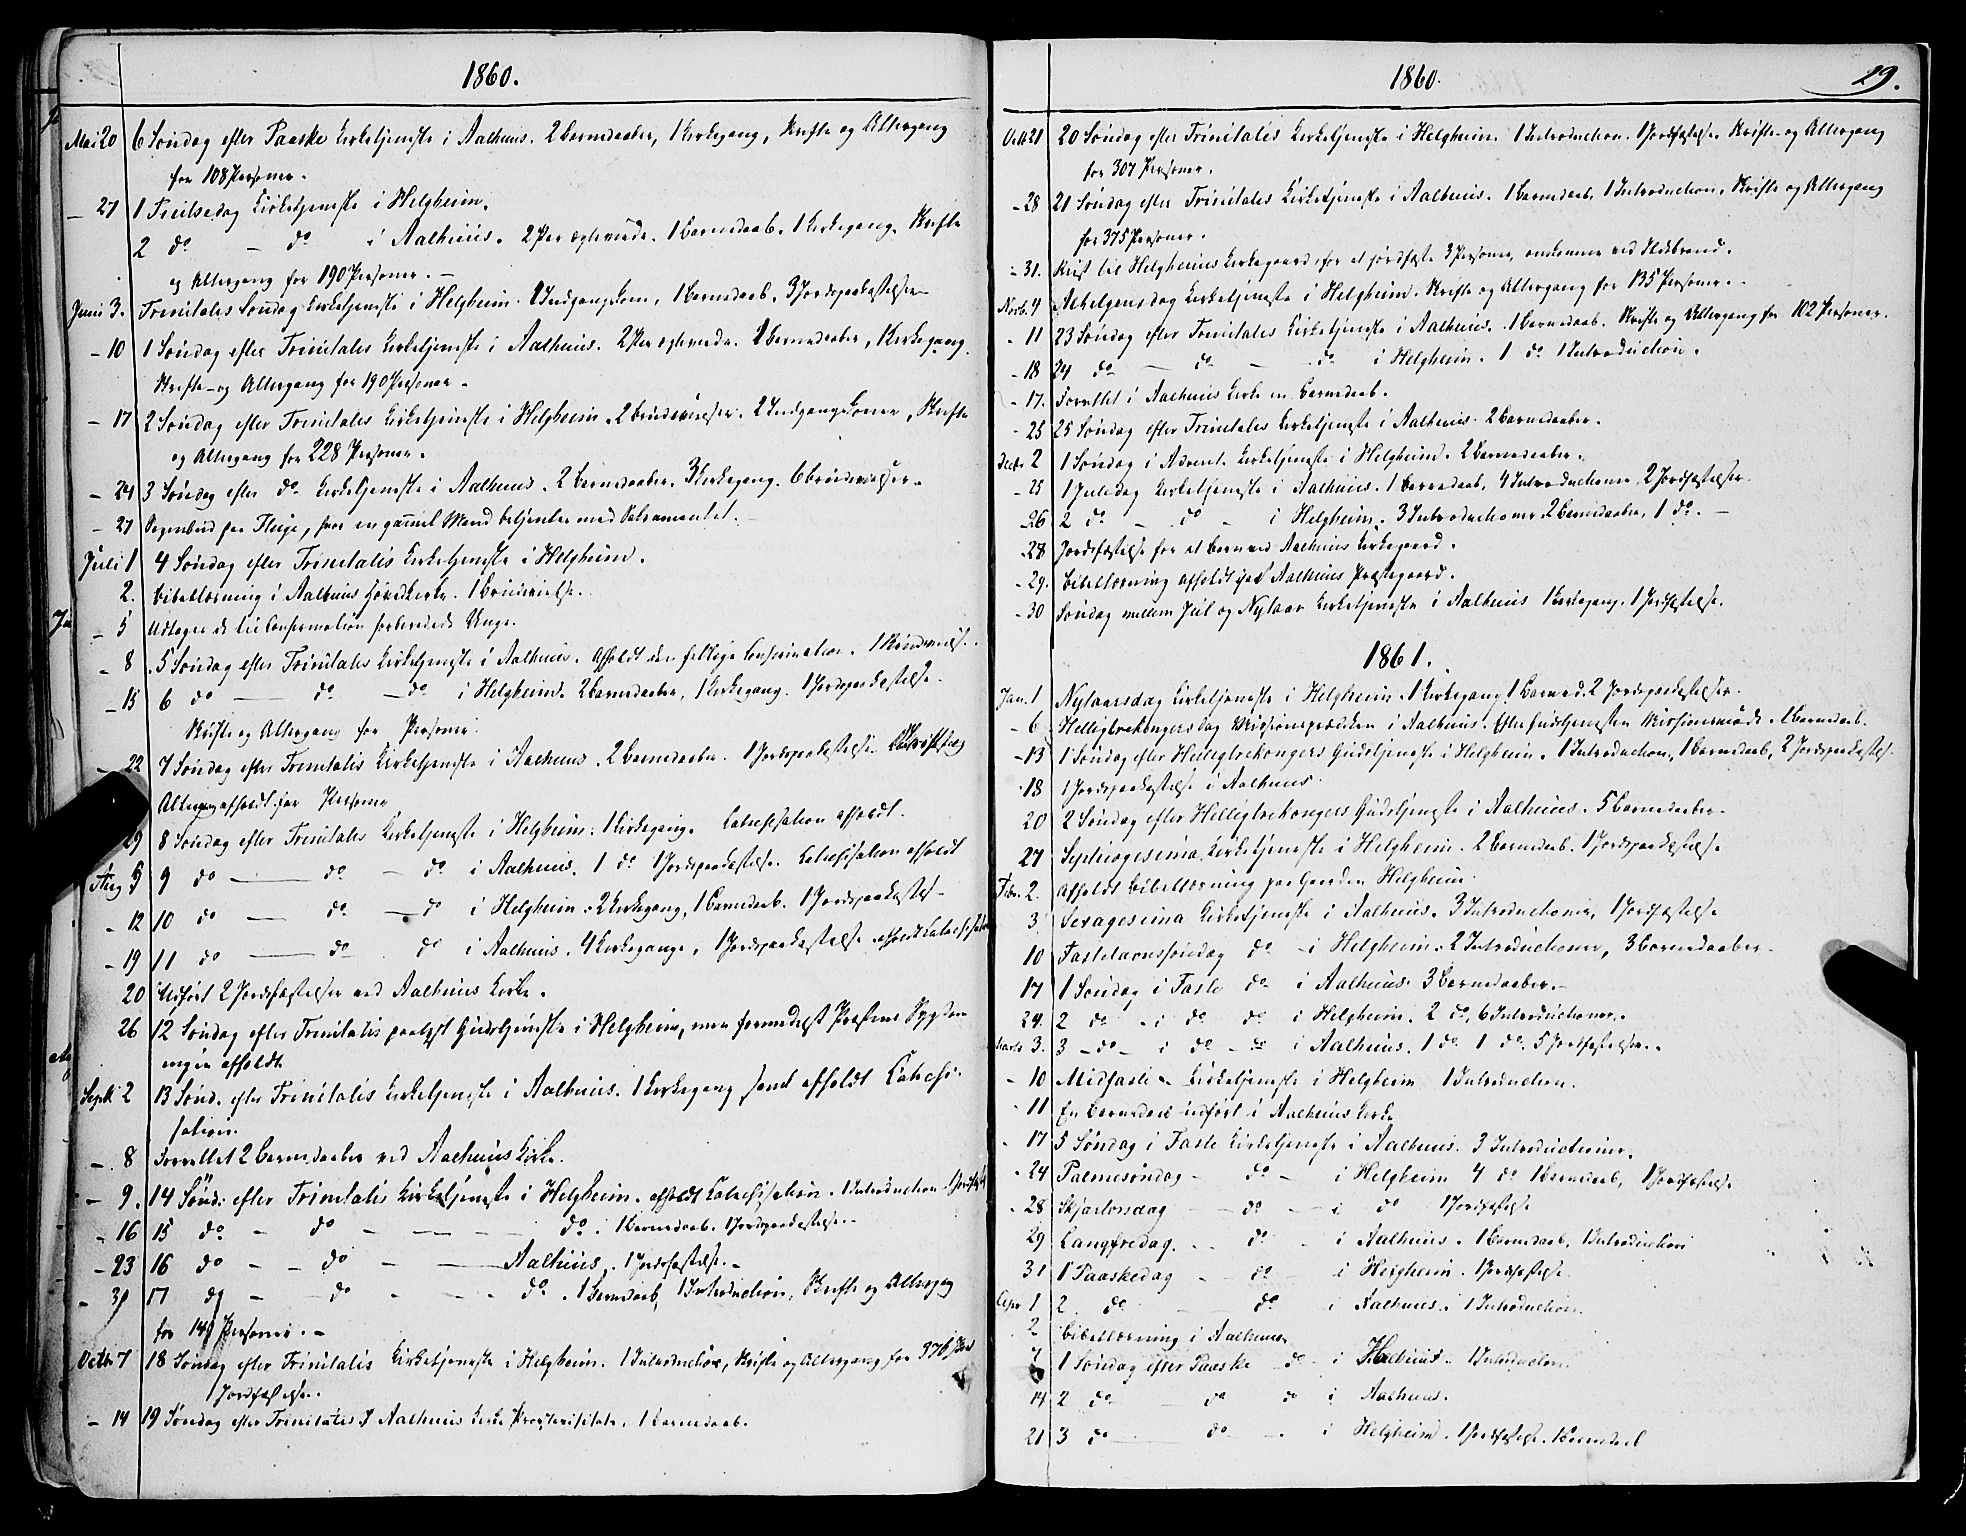 1860.
Mai 20 6 Søndag efter Paaske Kirketjeneste i Aalhuus. 2 Barnedaaber, 1 Kirkegang, Skrifte og Altergang
for 108 Personer.
- 27 1 Pintsedag Kirketjeneste i Helgheim.
2 do - do i Aalhuus. 2 Par ægteviede. 1 Barnedaab. 1 Kirkegang. Skrifte
og Altergang for 190 Personer. -
Juni 3. Trinitatis Søndag Kirketjeneste i Helgheim. 1 Indgangskone, 1 Barnedaab, 3 Jordpaakastelser
- 10 1 Søndag efter Trinitatis Kirketjeneste i Aalhuus. 2 Par ægteviede. 2 Barnedaaber, 1 Kirkegang.
Skrifte- og Altergang for 190 Personer -
- 17 2 Søndag efter Trinitatis Kirketjeneste i Helgheim. 2 Brudevielser. 2 Indgangskoner, Skrifte
og Altergang for 228 Personer.
- 24 3 Søndag efter do Kirketjeneste i Aalhuus. 2 Barnedaaber. 3 Kirkegang. 6 Brudevielser.
- 27 Sognebud paa Fluge, hvor en gammel Mand betjentes med Sakramentet.
Juli 1 4 Søndag efter Trinitatis Kirketjeneste i Helgheim.
2. Bibellæsning i Aalhuus Hovedkirke. 1 Brudevielse.
- 5 Udtoges de til Confirmation forberedede Unge.
- 8 5 Søndag efter Trinitatis Kirketjeneste i Aalhuus. Afholdt den Confirmation. 1 Brudevielse.
- 15 6 do - do - do i Helgheim. 2 Barnedaaber, 1 Kirkegang. 1 Jordpaakastelse.
Skrifte og Altergang for Personer.
- 22 7 Søndag efter Trinitatis Kirketjeneste i Aalhuus. 2 Barnedaaber. 1 Jordpaakastelse.
Altergang afholdt for Personer
29 8 Søndag efter Trinitatis Kirketjeneste i Helgheim. 1 Kirkegang. Catechisation afholdt.
Aug 5 9 do - do - do i Aalhuus. 1 do 1 Jordpaakastelse. Catechisation afholdt
- 12 10 do - do - do i Helgheim. 2 Kirkegang, 1 Barnedaab. 1 Jordpaakastelse
- 19 11 do - do do i Aalhuus. 4 Kirkegange, 1 Jordpaakastelse afholdt Catechisation
20 Udført 2 Jordfæstelser ved Aalhuus Kirke.
26 12 Søndag efter Trinitatis Gudstjeneste i Helgheim, men formedelst Præstens Sygdom
ingen afholdt.
Septb 2 13 Sønd. efter Trinitatis Kirketjeneste i Aalhuus. 1 Kirkegang samt afholdt Catechi-
sation.
- 8 Forrettet 2 Barnedaaber ved Aalhuus Kirke.
- 9. 14 Sønd. efter Trinitatis Kirketjeneste i Helgheim. afholdt Catechisation. 1 Introduction.
- 16 15 do - do - do. 1 Barnedaab. 1 Jordpaakastelse. -
- 23 16 do - do - Aalhuus. 1 Jordfæstelse. -
- 30 17 do - do - do. 1 Barnedaab, 1 Introduction, Skrifte og Altergang
for 149 Personer. -
Octbr 7 18 Søndag efter Trinitatis Kirketjeneste i Helgheim. 1 Introduction, Skrifte og Altergang for 376 Pers
1 Jordfæstelse.
- 14 19 Søndag efter Trinitatis I Aalhuus Kirke Provstevisitats. 1 Barnedaab.
1860.
29.
Octb 21 20 Søndag efter Trinitatis Kirketjeneste i Helgheim. 1 Introduction. 1 Jordfæstelse. Skrifte- og Altergang
for 307 Personer.
- 28 21 Søndag efter Trinitatis Kirketjeneste i Aalhuus. 1 Barnedaab, 1 Introduction, Skrifte og Altergang
for 375 Personer.
- 31. Reist til Helgheims Kirkegaard, for at jordfæste 3 Personer, omkomne ved Ildebrand.
Novb. 4 Allehelgensdag Kirketjeneste i Helgheim. Skrifte og Altergang for 135 Personer.
- 11 23 Søndag efter Trinitatis Kirketjeneste i Aalhuus. 1 Barnedaab. Skrifte og Altergang for 102 Personer.
- 18 24 do - do - do i Helgheim. 1 do 1 Introduction.
- 17. Forrettet i Aalhuus Kirke en Barnedaab.
- 25 25 Søndag efter Trinitatis Kirketjeneste i Aalhuus. 2 Barnedaaber.
Decbr 2 1 Søndag i Advent Kirketjeneste i Helgheim. 2 Barnedaaber.
- 25 1 Juledag Kirketjeneste i Aalhuus. 1 Barnedaab, 4 Introductioner, 2 Jordfæstelser.
- 26 2 do - do - i Helgheim. 3 Introductioner 2 Barnedaaber, 1 do. -
- 28 Jordfæstelse for et Barn ved Aalhuus Kirkegaard.
- 29. Bibellæsning afholdt paa Aalhuus Præstegaard.
- 30 Søndag mellem Jul og Nytaar Kirketjeneste i Aalhuus 1 Kirkegang. 1 Jordfæstelse.
1861.
Jan. 1 Nytaarsdag Kirketjeneste i Helgheim. 1 Kirkegang 1 Barned. 2 Jordpaakastelser.
- 6 Helligtrekongersdag Missionsprædiken i Aalhuus. Efter Gudstjenesten Missionsmøde. 1 Barnedaab.
- 13 1 Søndag efter Helligtrekongers Gudstjeneste i Helgheim. 1 Introduction, 1 Barnedaab, 2 Jordpaakastels.
- 18 1 Jordpaakastelse i Aalhuus.
20 2 Søndag efter Helligtrekongers Gudstjeneste i Aalhuus. 5 Barnedaaber.
27 Septuagesima Kirketjeneste i Helgheim. 2 Barnedaab. 1 Jordpaakastelse
Febr. 2. Afholdt Bibellæsning paa Gaarden Helgheim.
3. Sexagesima Kirketjeneste i Aalhuus. 3 Introductioner, 1 Jordfæstelse
10 Fastelavnssøndag do i Helgheim. 2 Introductioner, 3 Barnedaaber.
17 1 Søndag i Faste do i Aalhuus. 3 Barnedaaber. -
24. 2 do - i do do i Helgheim. 2 do, 6 Introductioner. -
Marts 3. 3 - do - i do - do i Aalhuus. 1 do 1 do. 5 Jordfæstelser. -
- 10 Midfaste - Kirketjeneste i Helgheim 1 Introduction.
- 11 En Barnedaab udført i Aalhuus Kirke
- 17 5 Søndag i Faste Kirketjeneste i Aalhuus. 3 Introductioner.
- 24 Palmesøndag - do - i Helgheim 4 do 1 Barnedaab, 1 Jordfæstelse
- 28 Skjærtorsdag - do - i do 1 Jordfæstelse
29 Langfredag. - do - i Aalhuus. 1 Barnedaab, 1 Introduction
31 1 Paaskedag - do i Helgheim. 1 Jordfæstelse.
Apr 1 2 do - do i Aalhuus. 1 Introduction.
2 Bibellæsning i Aalhuus.
7 1 Søndag efter Paaske do - i 1 Introduction.
14 2 do do do i Aalhuus.
21 3 do do - i Helgheim. 1 Jordfæstelse. 1 Barnedaab